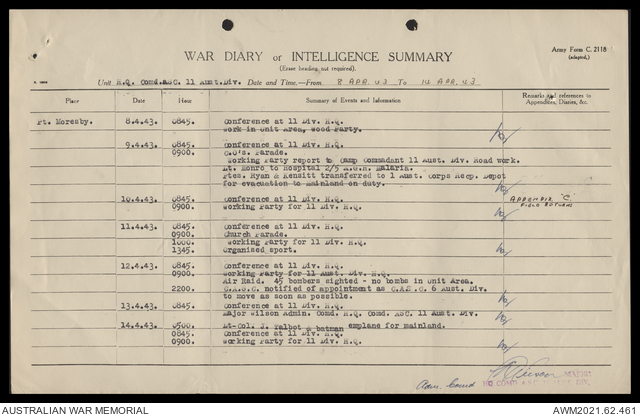 WAR DIARY or INTELLIGENCE SUMMARY
(Erase heading not required).
Army Form C. 2118
(adapted.)
Unit H.Q. Comd.ASC. 11 Aust.Div. Date and Time.—From 8 APR. 43 To 14 APR. 43
Place Date Hour Summary of Events and Information Remarks and references to Appendices, Diaries, &c.
Pt. Moresby. 8.4.43. 0845. Conference at 11 Div. H.Q.
Work in Unit Area, Wood Party.
9.4.43. 0845. Conference at 11 Div. H.Q.
0900. C.O's. Parade.
Working Party report to Camp Commadant 11 Aust. Div. Road work.
Lt. Monro to Hospital 2/5 A.G.H. Malaria.
Ptes. Ryan & Kensitt transferred to 1 Aust. Corps Recp. Depot
for evacuation to Mainland on duty.
10.4.43. 0845. Conference at 11 Div. H.Q. APPENDIX "C"
0900. Working Party for 11 Div. H.Q. FIELD RETURNS
11.4.43. 0845. Conference at 11 Div. H.Q.
0900. Church Parade.
1000. Working Party for 11 Div. H.Q.
1345. Organised sport.
12.4.43. 0845. Conference at 11 Div. H.Q.
0900. Working Party for 11 Aust. Div. H.Q.
Air Raid. 45 bombers sighted - no bombs in Unit Area.
2200. C.A.S.C. notified of appointment as C.A.S.C. 6 Aust. Div.
to move as soon as possible.
13.4.43. 0845. Conference at 11 Div. H.Q.
Major Wilson Admin. Comd. H.Q. Comd. ASC. 11 Aust. Div.
14.4.43. 0500. Lt-Col. J. Talbot & batman emplane for mainland.
0845. Conference at 11 Div. H.Q.
0900. Working Party for 11 Div. H.Q.
Adm. Comd MAJOR
HQ COMD
AUSTRALIAN WAR MEMORIAL AWM2021.62.461